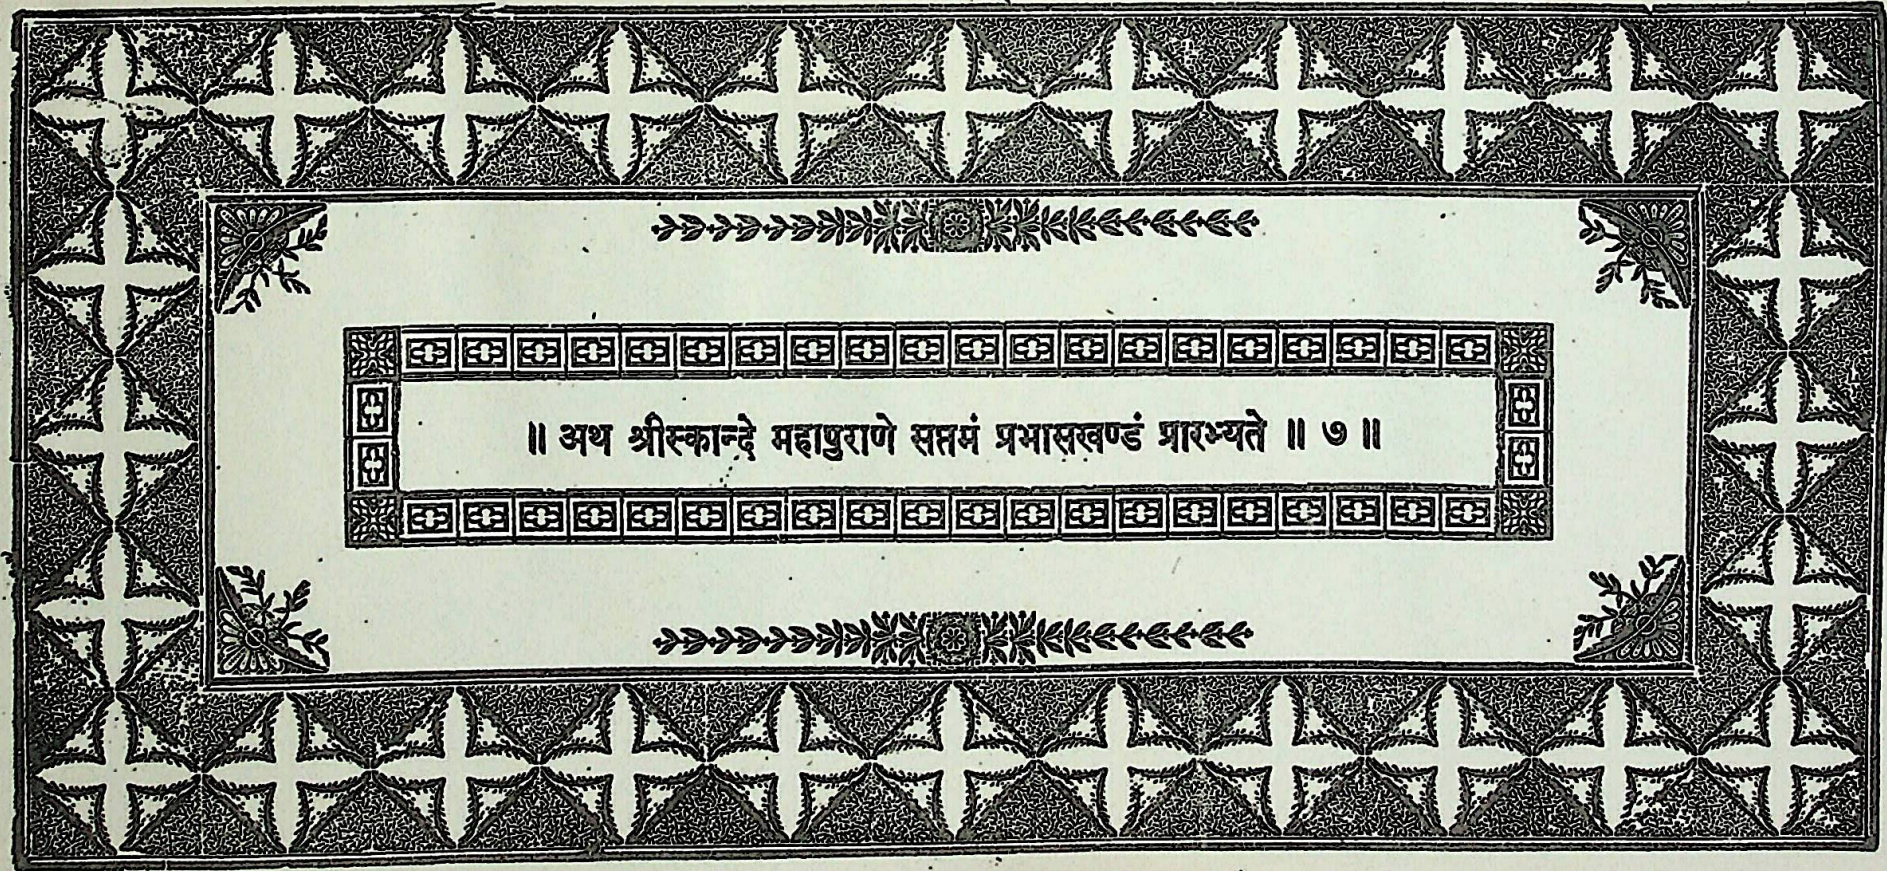 ॥ अथ श्रीस्कान्दे महापुराणे सप्तमं प्रभासखण्डं प्रारभ्यते ॥ ७ ॥